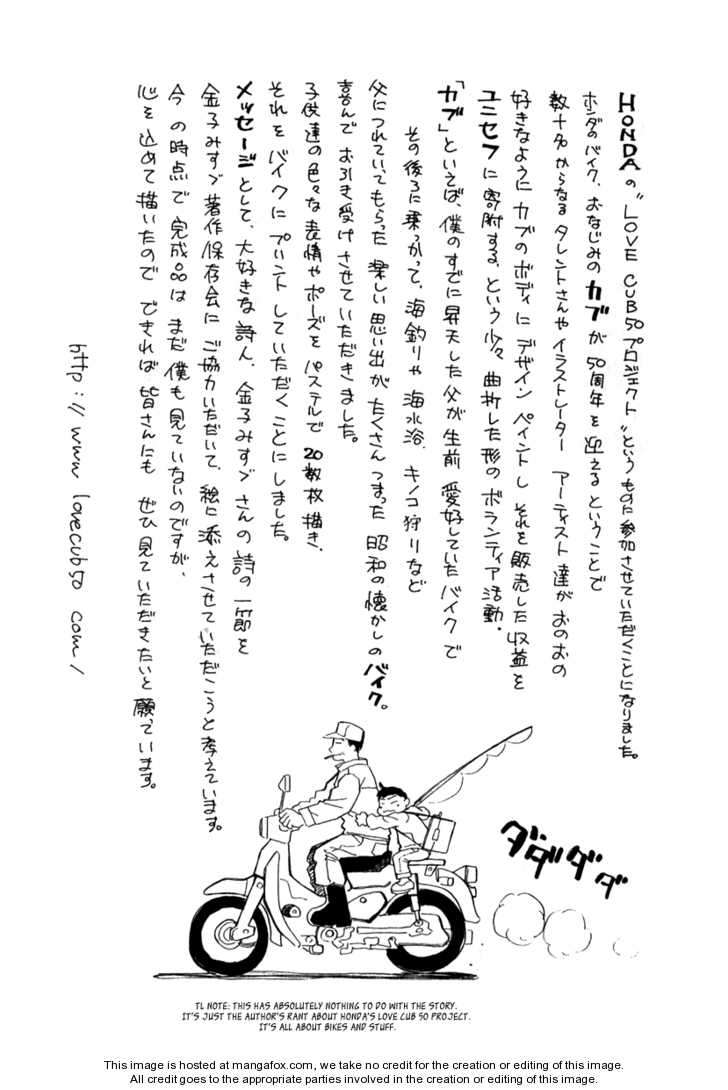 HONDAの"LOVE CUB50プロジェクト"というものに参加させていただくことになりました。
ホンダのバイク、おなじみのカブが50周年を迎えるということで
数十名からなるタレントさんやイラストレーター アーティスト達がおのおの
好きなようにカブのボディにデザインペイントし それを販売した収益を
ユニセフに寄附する、という少々曲折した形のボランティア活動。
「カブ」といえば、僕のすでに昇天した父が生前愛好していたバイクで
その後ろに乗っかって、海釣りや海水浴、キノコ狩りなど
父につれていってもらった楽しい思い出がたくさんつまった昭和の懐かしのバイク。
喜んでお引き受けさせていただきました。
子供達の色々な表情やポーズをパステルで20数枚描き、
それをバイクにプリントしていただくことにしました。
メッセージとして、大好きな詩人、金子みすゞさんの詩の一節を
金子みすゞ著作保存会にご協力いただいて、絵に添えさせていただこうと考えています。
今の時点で完成品はまだ僕も見ていないのですが、
心を込めて描いたのでできれば皆さんにもぜひ見ていただきたいと願っています。
http://www lovecub50 com/
ダダダダ
TL NOTE: THIS HAS ABSOLUTELY NOTHING TO DO WITH THE STORY.
IT'S JUST THE AUTHOR'S RANT ABOUT HONDA'S LOVE CUB 50 PROJECT.
IT'S ALL ABOUT BIKES AND STUFF.
This image is hosted at mangafox.com, we take no credit for the creation or editing of this image.
All credit goes to the appropriate parties involved in the creation or editing of this image.